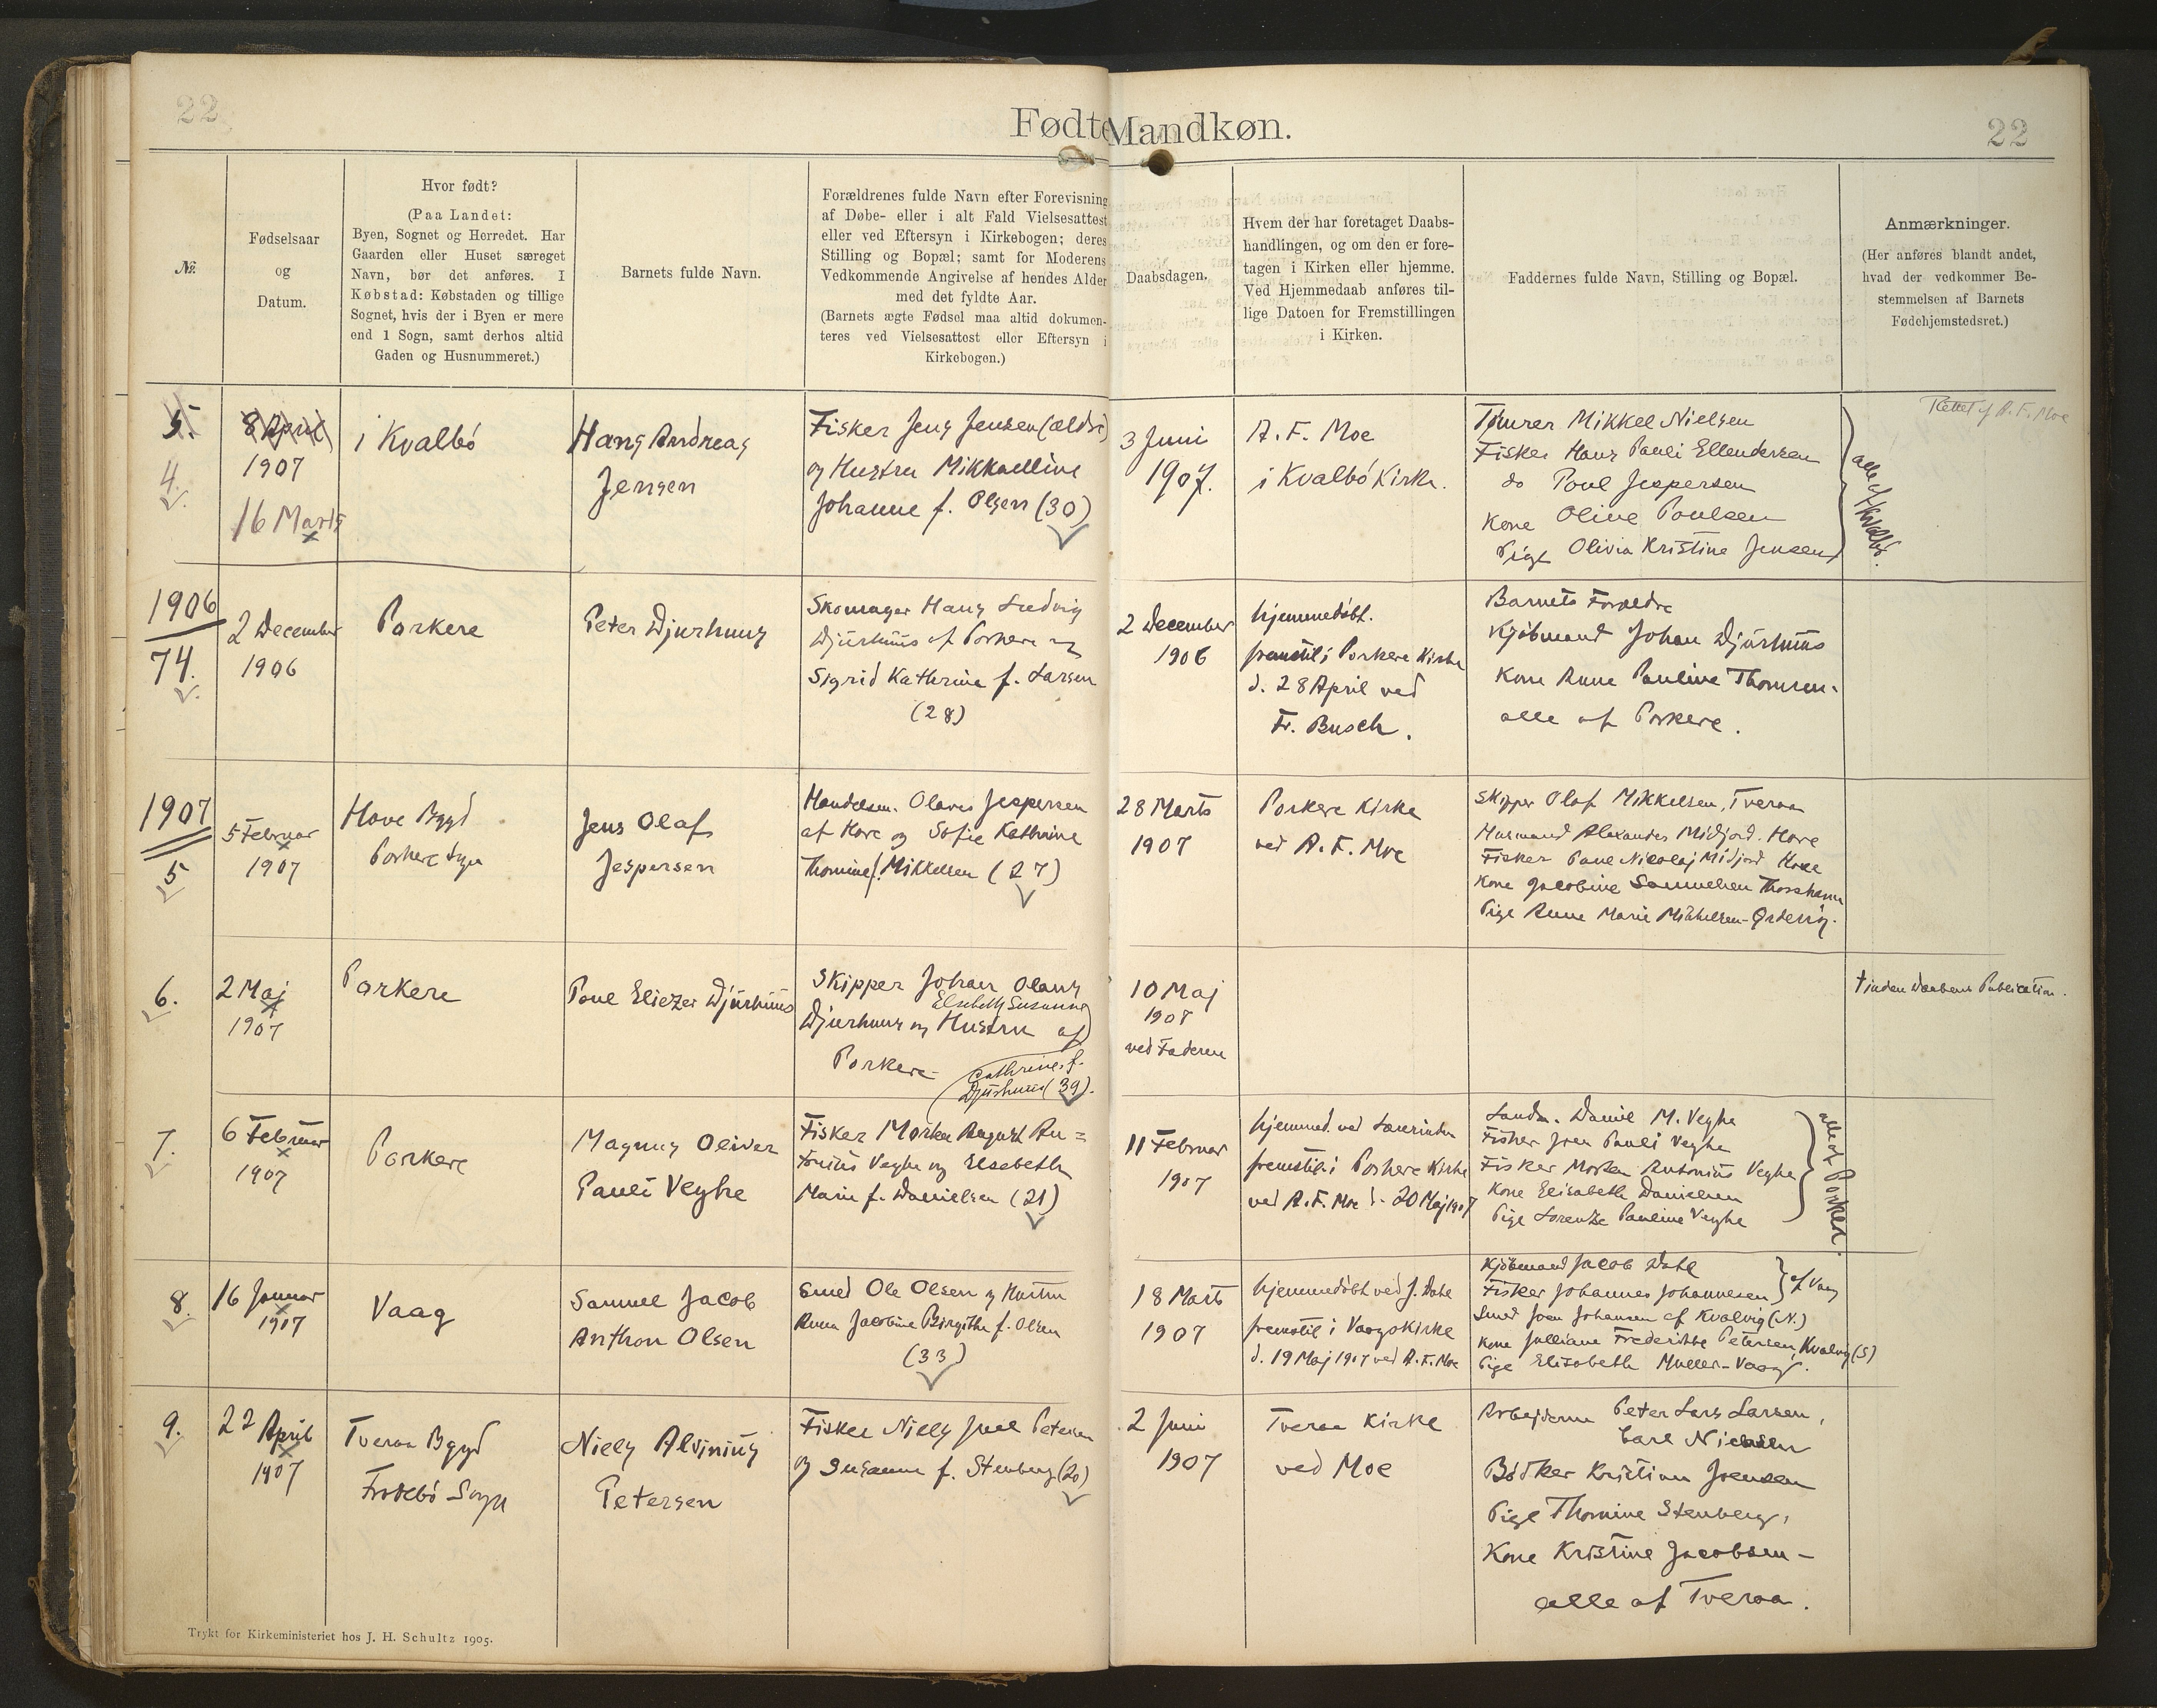 22
Fødte Mandkøn.
22
No.
Fødselsaar
og
Datum.
Hvor født?
(Paa Landet:
Byen, Sognet og Herredet. Har
Gaarden eller Huset særeget
Navn, bør det anføres. I
Købstad: Købstaden og tillige
Sognet, hvis der i Byen er mere
end 1 Sogn, samt derhos altid
Gaden og Husnummeret.)
Barnets fulde Navn.
Forældrenes fulde Navn efter Forevisning
af Døbe- eller i alt Fald Vielsesattest
eller ved Eftersyn i Kirkebogen; deres
Stilling og Bopæl; samt for Moderens
Vedkommende Angivelse af hendes Alder
med det fyldte Aar.
(Barnets ægte Fødsel maa altid dokumen-
teres ved Vielsesattest eller Eftersyn i
Kirkebogen.)
Daabsdagen.
Hvem der har foretaget Daabs-
handlingen, og om den er fore-
tagen i Kirken eller hjemme.
Ved Hjemmedaab anføres til-
lige Datoen for Fremstillingen
i Kirken.
Faddernes fulde Navn, Stilling og Bopæl.
Anmærkninger.
(Her anføres blandt andet,
hvad der vedkommer Be-
stemmelsen af Barnets
Fødehjemstedsret.)
5.
4.
8 April
1907
16 Marts
i Kvalbö
Hans Andreas
Jensen
Fisker Jens Jensen (ældre)
og Hustru Mikkaeline
Johanne f. Olsen (30)
3 Juni
1907.
A. F. Moe
i Kvalbö Kirke.
Tömrer Mikkel Nielsen
Fisker Hans Pauli Ellendersen
do Poul Jespersen
Kone Olive Poulsen
Pige Olivia Kristine Jensen
alle af Kvalbö.
Rettet af A. F. Moe
1906
74.
2 December
1906
Porkere
Peter Djurhuus
Skomager Hans Ludvig
Djurhuus af Porkere og
Sigrid Kathrine f. Larsen
(28)
2 December
1906
hjemmedöbt.
fremstil i Porkere Kirke
d. 28 April ved
Fr. Busch.
Barnets Forældre
Kjöbmand Johan Djurhuus
Kone Anne Pauline Thomsen.
alle af Porkere.
1907
5
5 Februar
1907
Hove Bygd
Porkere Sogn
Jens Olaf
Jespersen
Handelsm. Olaves Jespersen
af Hove og Sofie Kathrine
Thomine f. Mikkelsen (27)
28 Marts
1907
Porkere Kirke
ved A. F. Moe
Skipper Olaf Mikkelsen, Tveraa
Husmand Alexander Midjord. Hove
Fisker Poul Nicolaj Midjord Hove
Kone Jacobine Samuelsen Thorshavn
Pige Anne Marie Mikkelsen - Ördevig.
6.
2 Maj
1907
Porkere
Poul Eliezer Djurhuus
Skipper Johan Olaus
Djurhuus og Hustru Elsebeth Susanne
af Porkere Cathrine f.
Djurhuus (39).
10 Maj
1907
ved Faderen
† inden Daabens Publication.
7.
6 Februar
1907
Porkere
Magnus Oliver
Pauli Veyhe
Fisker Morten August An=
tonius Veyhe og Elsebeth
Marie f. Danielsen (21)
11 Februar
1907
hjemmed. ved Lærerinden
fremstil. i Porkere Kirke
ved A. F. Moe d. 20 Maj 1907
Landm. Daniel M. Veyhe
Fisker Joen Pauli Veyhe
Fisker Morten Antonius Veyhe
Kone Elisabeth Danielsen
Pige Lorentze Pauline Veyhe
alle af Porkere.
8.
16 Januar
1907
Vaag
Samuel Jacob
Anthon Olsen
Smed Ole Olsen og Hustru
Anna Jacobine Birgithe f. Olsen
(33)
18 Marts
1907
hjemmedöbt ved J. Dahl
fremstil i Vaags Kirke
d. 19 Maj 1907 ved A. F. Moe
Kjöbmand Jacob Dahl
Fisker Johannes Johannesen } af Vaag
Smed Joen Johansen af Kvalvig (N.)
Kone Julliane Frederikke Petersen, Kvalvig (S)
Pige Elisabeth Muller - Vaag.
9.
22 April
1907
Tveraa Bygd
Frodebö Sogn
Niels Alvinius
Petersen
Fisker Niels Juel Petersen
og Susanne f. Stenberg (20)
2 Juni
1907
Tveraa Kirke
ved Moe
Arbejderne Peter Lars Larsen,
Carl Nielsen
Bödker Kristian Joensen
Pige Thomine Stenberg,
Kone Kristine Jacobsen -
alle af Tveraa.
Trykt for Kirkeministeriet hos J. H. Schultz 1905.